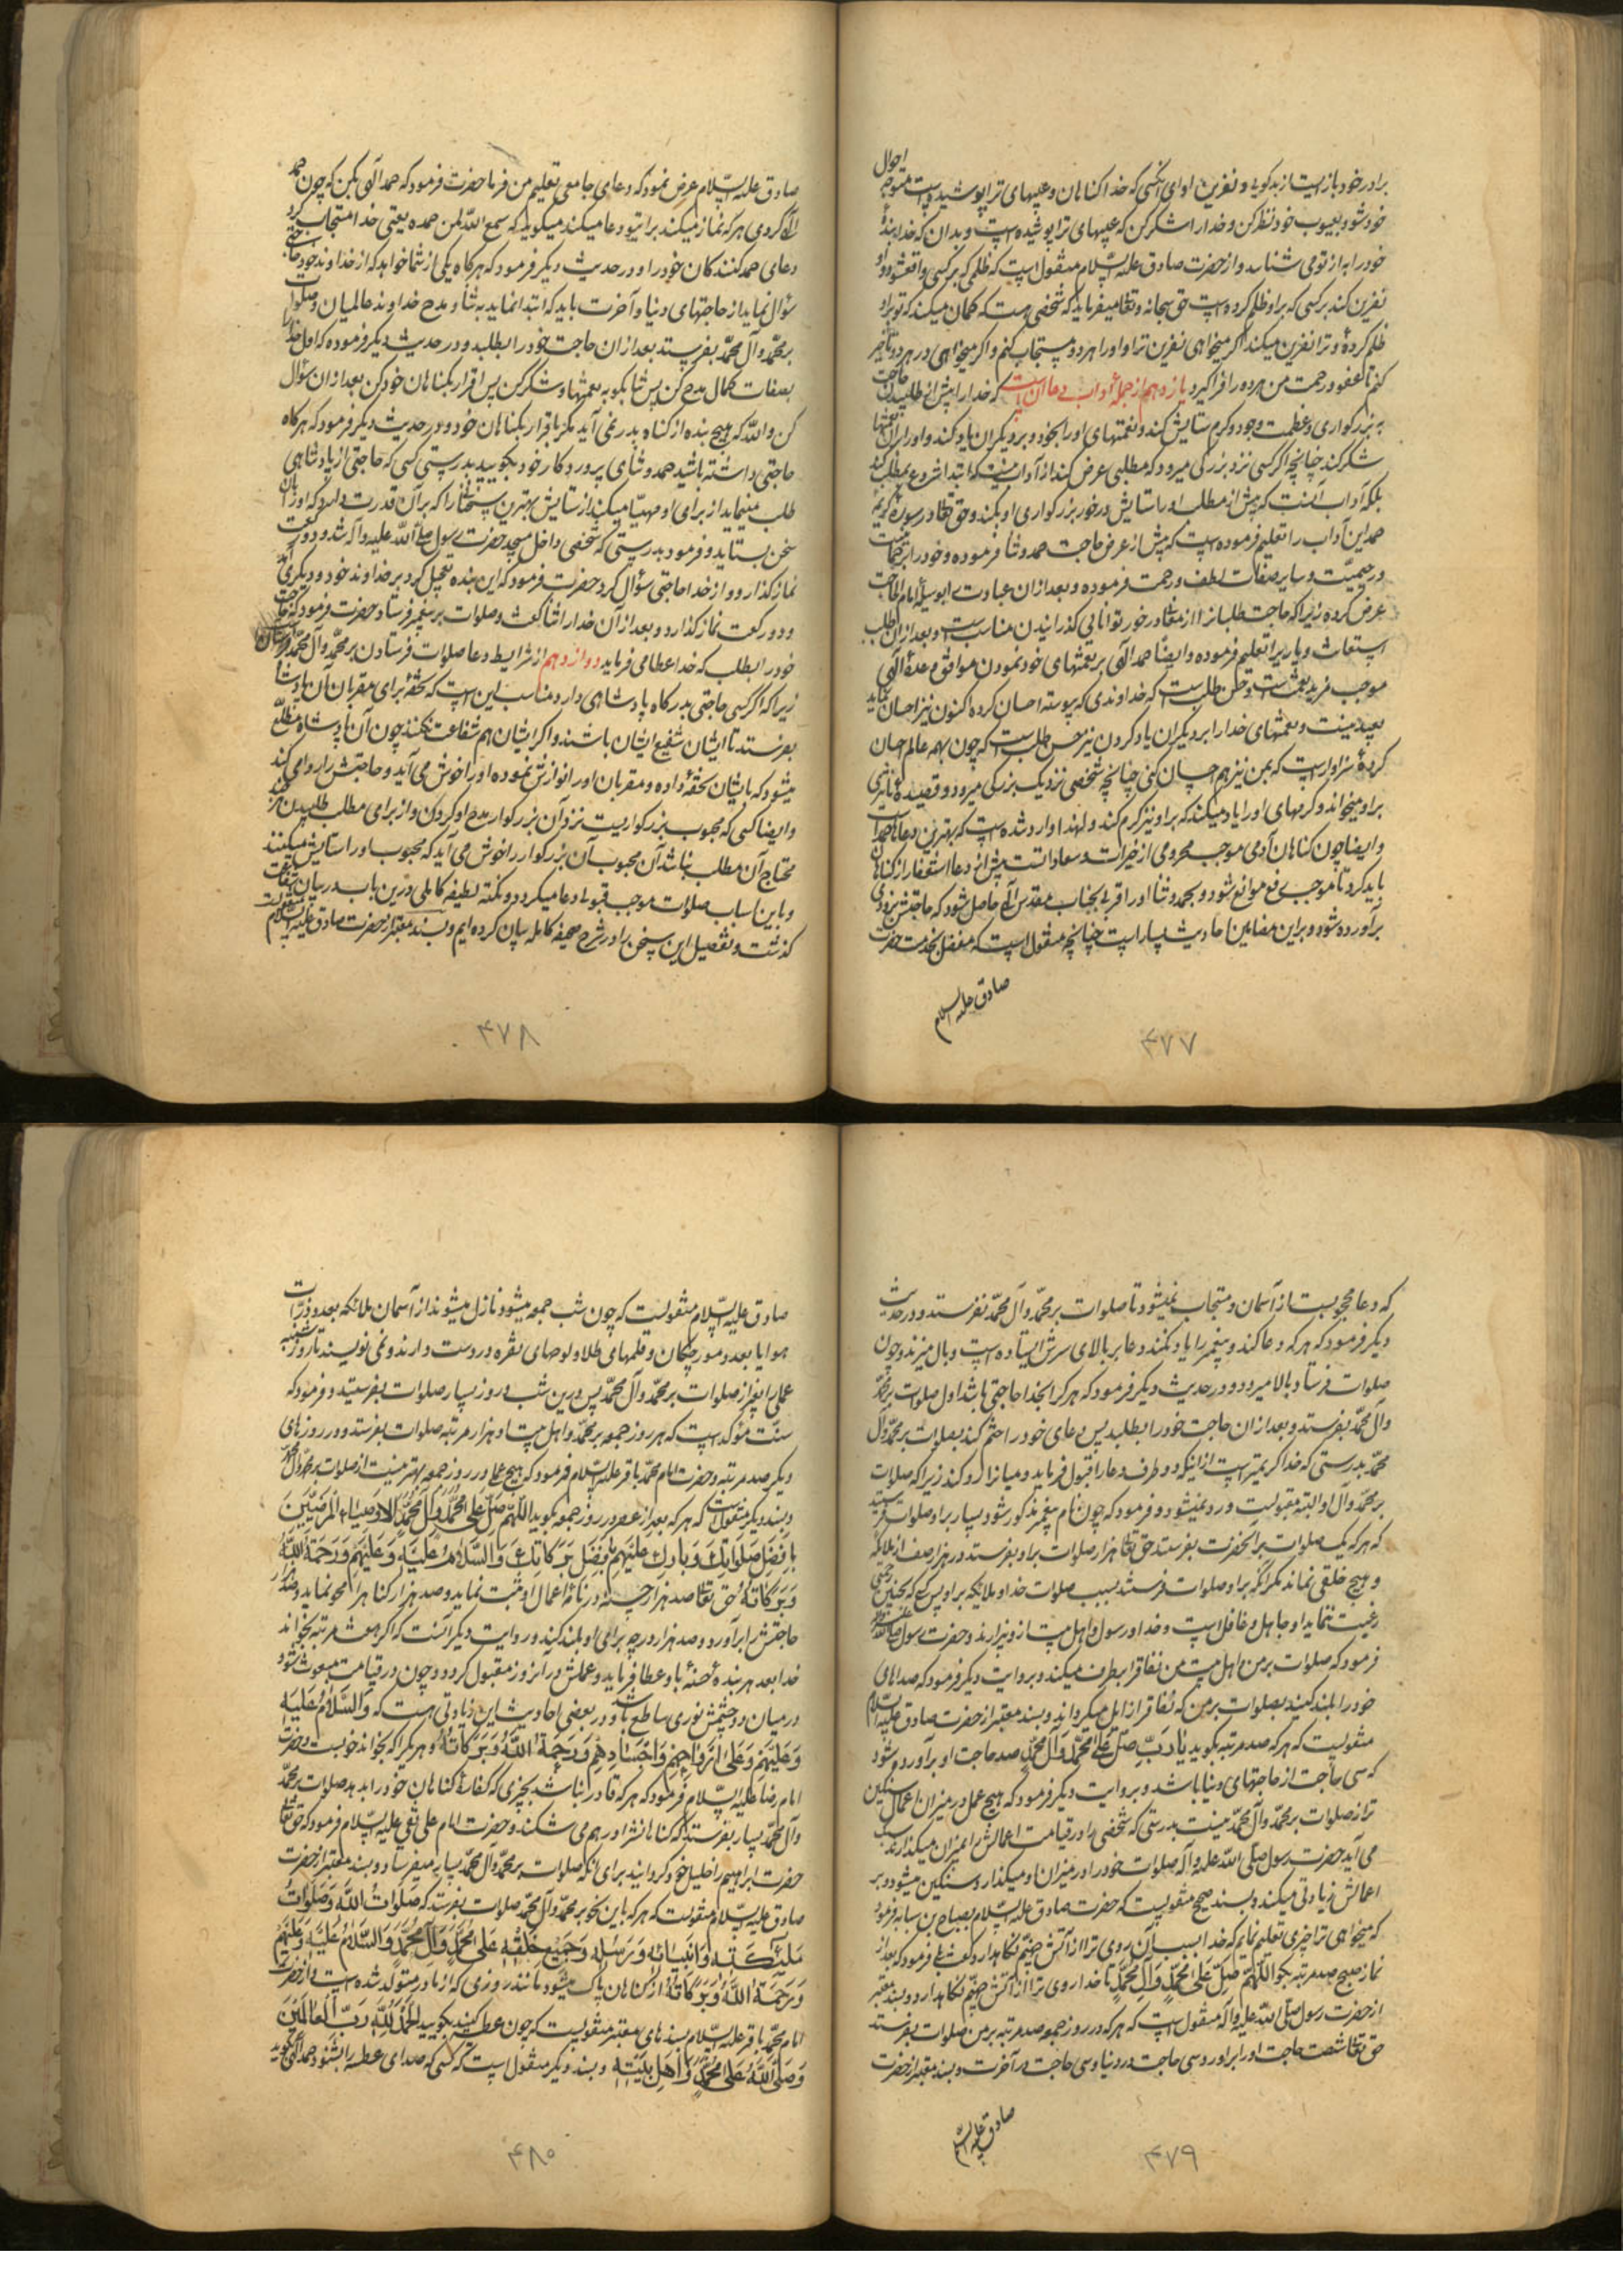 برادر خود باز ایست از بدکویی و نفرین او ای انکسی که خدا کناهان و عیبهای ترا پوشیده است متوجه احوال
خود شو و بعیوب خود نظر کن و خدا را شکر کن که عیبهای ترا پوشیده است و بدان که خدا بندهٔ
خود را به از تو می شناسد و از حضرت صادق علیه السّلام منقول است که ظلمی که بر کسی واقع شود و او
نفرین کند بر کسی که بر او ظلم کرده است حق سبحانه و تعالی میفرماید که شخصی هست که کمان میکند که تو بر او
ظلم کردهٔ و ترا نفرین میکند اکر میخواهی نفرین ترا و او را هر دو مستجاب کنم و اکر میخواهی در هر دو تأخیر
کنم تا عفو و رحمت من هر دو را فرا کیرد یازدهم از جملهٔ آداب دعا آن است که خدا را پیش از طلبیدن حاجت
به بزرکواری و عظمت وجود و کرم ستایش کند و نعمتهای او را بخود و بر دیکران یاد کند و او را بر آن نعمتها
شکر کند چنانچه اکر کسی نزد بزرکی میرود که مطلبی عرض کند از آداب نیست که ابتدا شروع بمطلب کند
بلکه آداب آنست که پیش از مطلب او را ستایش در خور بزرکواری او بکند و حق تعالی در سورهٔ کریمه
حمد این آداب را تعلیم فرموده است که پیش از عرض حاجت حمد و ثنا فرموده و خود را برحمانیت
و رحیمیّت و سایر صفات لطف و رحمت فرموده و بعد از ان عبادت را بوسیلهٔ امام الحاجت
عرض کرده زیرا که حاجت طلبانرا ارمغانی در خور توانایی کذرانیدن مناسب است و بعد از ان طلب
استعانت و یاری را تعلیم فرموده و ایضا حمد الهی بر نعمتهای خود نمودن موافق وعدهٔ الهی
موجب مزید نعمت است و حسن طلب است که خداوندی که پیوسته احسان کرده اکنون نیز احسان نماید
بعید نیست و نعمتهای خدا را بر دیکران یاد کردن نیز حسن طلب است که چون بهمه عالم احسان
کردهٔ سزاوار است که بمن نیز هم احسان کنی چنانچه شخصی نزدیک بزرکی میرود و قصیدهٔ
بر او میخواند و کرمهای او را یاد میکند که بر او نیز کرم کند و لهذا وارد شده است که بهترین دعاها حمد است
و ایضا چون کناهان آدمی موجب محرومی از خیرات و سعادات است پیش از دعا استغفار از کناهان
باید کرد تا موجب رفع موانع شود و بحمد و ثنا او را قربی بجناب مقدس الهی حاصل شود که حاجتش بزودی
برآورده شود و بر این مضامین احادیث بسیار است چنانچه منقول است که مفضل بخدمت حضرت
صادق علیه السلام
۴۷۷
صادق علیه السّلام عرض نمود که دعای جامعی تعلیم من فرما حضرت فرمود که حمد الهی بکن که چون حمد
الهی کردی هر که نماز میکند برای تو دعا میکند میکوید که سمع الله لمن حمده یعنی خدا مستجاب کرد
دعای حمد کنندکان خود را و در حدیث دیکر فرمود که هرکاه یکی از شما خواهد که از خداوند خود حاجتی
سؤال نماید از حاجتهای دنیا و آخرت باید که ابتدا نماید به ثنا و مدح خداوند عالمیان و صلوات
بر محمّد و آل محمّد بفرستد بعد از ان حاجت خود را بطلبد و در حدیث دیکر فرموده که اول خدا را
بصفات کمال مدح کن پس ثنا بکو به نعمتها و شکر کن پس اقرار بکناهان خود کن بعد از ان سؤال
کن والله که هیچ بنده از کناه بدر نمی آید مکر باقرار بکناهان خود و در حدیث دیکر فرمود که هرکاه
حاجتی داشته باشید حمد و ثنای پروردکار خود بکویید بدرستی کسی که حاجتی از پادشاهی
طلب مینماید از برای او مهیّا میکند از ستایش بهترین سخنان را که بر آن قدرت دارد که او را بآن
سخن بستاید و فرمود بدرستی که شخصی داخل مسجد حضرت رسول صلی الله علیه و آله شد و دو رکعت
نماز کذارد و از خدا حاجتی سؤال کرد حضرت فرمود که این بنده تعجیل کرد بر خداوند خود و دیکری آمد
و دو رکعت نماز کذارد و بعد از آن خدا را ثنا کفت و صلوات بر پیغمبر فرستاد حضرت فرمود که حاجت
خود را بطلب که خدا عطا می فرماید دوازدهم از شرایط دعا صلوات فرستادن بر محمّد و آل محمّد
زیرا که اکر کسی حاجتی بدرکاه پادشاهی دارد مناسب این است که تحفهٔ برای مقربان آن پادشاه
بفرستد تا ایشان شفیع ایشان باشند و اکر ایشان هم شفاعت نکنند چون آن پادشاه مطلع
میشود که بایشان تحفهٔ داده و مقربان او را نوازش نموده او را خوش می آید و حاجتش را روا می کند
و ایضا کسی که محبوب بزرکواریست نزد آن بزرکوار مدح او کردن و از برای مطلب طلبیدن
محتاج آن مطلب نباشد آن محبوب آن بزرکوار را خوش می آید که محبوب او را ستایش میکنند
و باین اسباب صلوات موجب قبول دعا میکردد و نکته لطیفه کاملی درین باب در بیان
کذشت و تفصیل این سخن را در شرح صحیفه کامله بیان کرده ایم و بسند معتبر از حضرت صادق علیه السّلام منقولست
۴۷۸
که دعا محجوبست از آسمان و مستجاب نمیشود تا صلوات بر محمّد و آل محمّد نفرستد و در حدیث
دیکر فرمود که هر که دعا کند و پیغمبر را یاد نکند دعا بر بالای سرش ایستاده است و بال میزند و چون
صلوات فرستاد بالا میرود و در حدیث دیکر فرمود که هر کرا بخدا حاجتی باشد اول صلوات بر محمّد
و آل محمّد بفرستد و بعد از ان حاجت خود را بطلبد پس دعای خود را ختم کند بصلوات بر محمّد و آل
محمّد بدرستی که خدا کریمتر است از اینکه دو طرف دعا را قبول فرماید و میانرا رد کند زیرا که صلوات
بر محمّد و آل او البته مقبولست و رد نمیشود و فرمود که چون نام پیغمبر مذکور شود بسیار بر او صلوات فرستید
که هر که یک صلوات بر آنحضرت بفرستد حق تعالی هزار صلوات بر او بفرستد در هزار صف از ملایکه
و هیچ خلقی نماند مکر آنکه بر او صلوات فرستد بسبب صلوات خدا و ملایکه بر او پس کسی که بچنین رحمتی
رغبت ننماید او جاهل و غافل است و خدا و رسول و اهل بیت از و بیزارند و حضرت رسول صلی الله علیه و آله
فرمود که صلوات بر من و اهل بیت من نفاق را برطرف میکند و بروایت دیکر فرمود که صداهای
خود را بلند کنید بصلوات بر من که نفاق را زایل میکرداند و بسند معتبر از حضرت صادق علیه السّلام
منقولست که هر که صد مرتبه بکوید یا رَبِّ صَلِّ عَلی مُحَمَّدٍ وَ آلِ مُحَمَّدٍ صد حاجت او برآورده شود
که سی حاجت از حاجتهای دنیا باشد و بروایت دیکر فرمود که هیچ عمل در میزان اعمال سنکین
تر از صلوات بر محمّد و آل محمّد نیست بدرستی که شخصی را در قیامت اعمالش را بمیزان میکذارند سبک
می آید حضرت رسول صلّی الله علیه و آله صلوات خود را در میزان او میکذارد سنکین میشود و بر
اعمالش زیادتی میکند و بسند صحیح منقولست که حضرت صادق علیه السّلام بصباح بن سیابه فرمود
که میخواهی ترا چیزی تعلیم نمایم که خدا بسبب آن روی ترا از آتش جهنّم نکاهدارد کفت بلی فرمود که بعد از
نماز صبح صد مرتبه بکو اَللّهُمَّ صَلِّ عَلی مُحَمَّدٍ وَ آلِ مُحَمَّدٍ تا خدا روی ترا از آتش جهنّم نکاهدارد و بسند معتبر
از حضرت رسول صلی الله علیه و آله منقول است که هر که در روز جمعه صد مرتبه بر من صلوات بفرستد
حق تعالی شصت حاجت او را برآورد سی حاجت در دنیا و سی حاجت در آخرت و بسند معتبر از حضرت
صادق علیه السّلام
۴۷۹
صادق علیه السّلام منقولست که چون شب جمعه میشود نازل میشوند از آسمان ملائکه بعدد ذرّات
هوا یا بعدد مورچکان و قلمهای طلا و لوحهای نقره در دست دارند و نمی نویسند تا روز شنبه
عملی را بغیر از صلوات بر محمّد و آل محمّد پس درین شب و روز بسیار صلوات بفرستید و فرمود که
سنّت مؤکد است که هر روز جمعه بر محمّد و اهل بیت او هزار مرتبه صلوات بفرستد و در روزهای
دیکر صد مرتبه و حضرت امام محمّد باقر علیه السّلام فرمود که هیچ عمل در روز جمعه بهتر نیست از صلوات بر محمّد و آل محمّد
و بسند دیکر منقول است که هر که بعد از عصر در روز جمعه بکوید اَللّهُمَّ صَلِّ عَلی مُحَمَّدٍ وَ آلِ مُحَمَّدٍ الاَوْصِیاءِ الْمَرْضِیّینَ
بِاَفْضَلِ صَلَواتِکَ وَ بارِکْ عَلَیْهِمْ بِاَفْضَلِ بَرَکاتِکَ وَ السَّلامُ عَلَیْهِ وَ عَلَیْهِمْ وَ رَحْمَةُ اللهِ
وَ بَرَکاتُهُ حق تعالی صد هزار حسنه در نامهٔ اعمال او ثبت نماید و صد هزار کناه را محو نماید و صد هزار
حاجتش را برآورد و صد هزار درجه برای او بلند کند و در روایت دیکر آنست که اکر هفت مرتبه بخواند
خدا بعدد هر بندهٔ حسنهٔ باو عطا فرماید و عملش در آنروز مقبول کردد و چون در قیامت مبعوث شود
در میان دو چشمش نوری ساطع باشد و در بعضی احادیث این زیادتی هست که وَ السَّلامُ عَلَیْهِ
وَ عَلَیْهِمْ وَ عَلی اَرْواحِهِمْ وَ اَجْسادِهِمْ وَ رَحْمَةُ اللهِ وَ بَرَکاتُهُ و هر یک را که بخواند خوبست و حضرت
امام رضا علیه السّلام فرمود که هر که قادر نباشد بچیزی که کفارهٔ کناهان خود را بدهد صلوات بر محمّد
و آل محمّد بسیار بفرستد که کناهانش را در هم می شکند و حضرت امام علی نقی علیه السّلام فرمود که حق تعالی
حضرت ابراهیم را خلیل خود کردانید برای آنکه صلوات بر محمّد و آل محمّد بسیار میفرستاد و بسند معتبر از حضرت
صادق علیه السّلام منقولست که هر که باین نحو بر محمّد و آل محمّد صلوات بفرستد که صَلَواتُ اللهِ وَ صَلَواتُ
مَلئِکَتِهِ وَ اَنْبِیائِهِ وَ رُسُلِهِ وَ جَمیعِ خَلْقِهِ عَلی مُحَمَّدٍ وَ آلِ مُحَمَّدٍ وَ السَّلامُ عَلَیْهِ وَ عَلَیْهِمْ
وَ رَحْمَةُ اللهِ وَ بَرَکاتُهُ از کناهان پاک میشود مانند روزی که از مادر متولّد شده است و از حضرت
امام محمّد باقر علیه السّلام بسندهای معتبر منقولست که چون عطسه کنید بکویید اَلْحَمْدُ لِلّهِ رَبِّ الْعالَمینَ
وَ صَلَّی اللهُ عَلی مُحَمَّدٍ وَ اَهْلِ بَیْتِهِ و بسند دیکر منقول است که کسی که صدای عطسه را بشنود و حمد الهی بکوید
۴۸۰